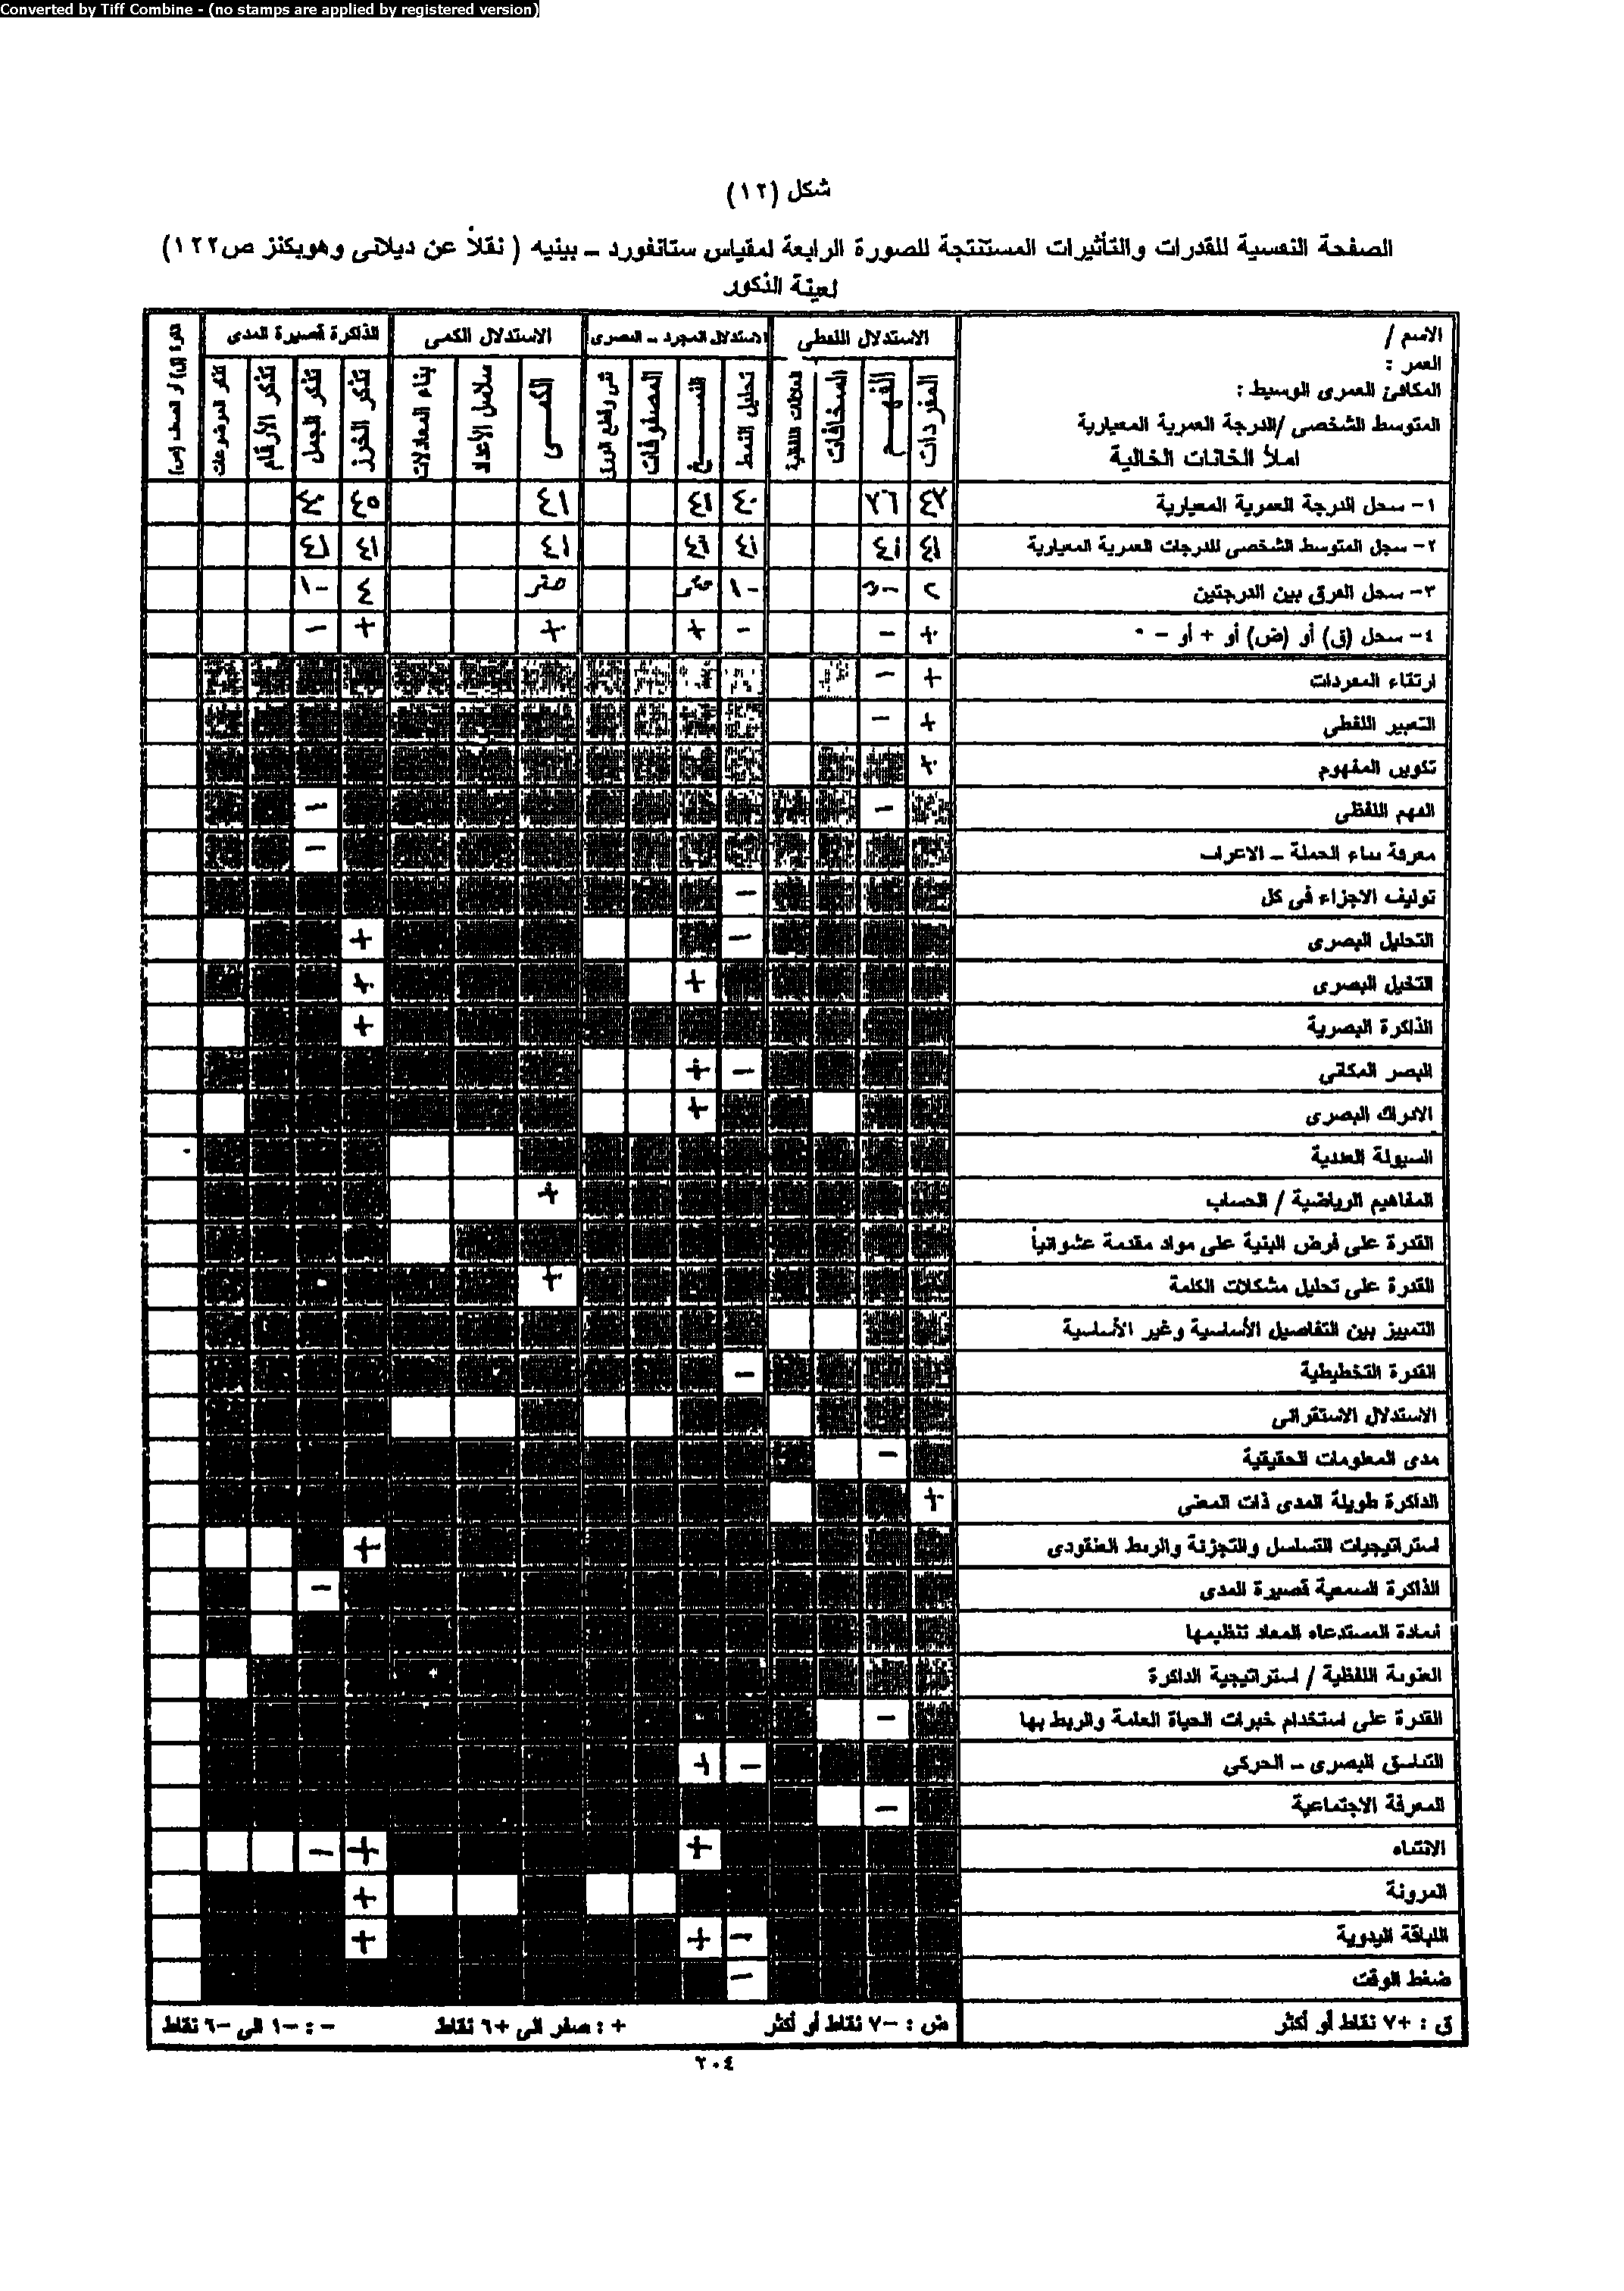 Converted by Tiff Combine - (no stamps are applied by registered version)
شكل (١٢)
الصفحة النفسية للقدرات والتأثيرات المستنتجة للصورة الرابعة لمقياس ستانفورد – بينيه ( نقلاً عن ديلانى وهوبكنز ص١٢٢)
لعينة الذكور
الاسم /
العمر :
المكافئ العمرى الوسيط :
المتوسط الشخصى /الدرجة العمرية المعيارية
املأ الخانات الخالية
الاستدلال اللفظى
الاستدلال المجرد – البصرى
الاستدلال الكمى
الذاكرة قصيرة المدى
المفردات
الفهم
السخافات
العلاقات اللفظية
تحليل النمط
النسخ
المصفوفات
ثنى وقطع الورق
الكمى
سلاسل الأعداد
بناء المعادلات
تذكر الخرز
تذكر الجمل
تذكر الأرقام
تذكر الموضوعات
١– سجل الدرجة العمرية المعيارية ٤٣ ٣٦ ٤٠ ٤١ ٤١ ٤٥ ٤٠
٢– سجل المتوسط الشخصى للدرجات العمرية المعيارية ٤١ ٤١ ٤١ ٤١ ٤١ ٤١ ٤١
٣– سجل الفرق بين الدرجتين ٢ –٥ –١ صفر صفر ٤ –١
٤– سجل (ق) أو (ض) أو + أو – + – – + + + –
ارتقاء المفردات + –
التعبير اللفظى + –
تكوين المفهوم +
الفهم اللفظى – –
معرفة بناء الجملة – الاعراب –
توليف الاجزاء فى كل –
التحليل البصرى – +
التخيل البصرى + +
الذاكرة البصرية +
البصر المكانى – +
الادراك البصرى +
السيولة العددية
المفاهيم الرياضية / الحساب +
القدرة على فرض البنية على مواد مقدمة عشوائياً
القدرة على تحليل مشكلات الكلمة +
التمييز بين التفاصيل الأساسية وغير الأساسية
القدرة التخطيطية –
الاستدلال الاستقرائى
مدى المعلومات الحقيقية –
الذاكرة طويلة المدى ذات المعنى +
استراتيجيات التسلسل والتجزئة والربط العنقودى +
الذاكرة السمعية قصيرة المدى –
المادة المستدعاه المعاد تنظيمها
العنونة اللفظية / استراتيجية الذاكرة
القدرة على استخدام خبرات الحياة العامة والربط بها –
التناسق البصرى – الحركى – +
المعرفة الاجتماعية –
الانتباه + + –
المرونة +
اللباقة اليدوية – + +
ضغط الوقت –
ق : +٧ نقاط أو أكثر ض : –٧ نقاط أو أكثر + : صفر الى +٦ نقاط – : –١ الى –٦ نقاط
٢٠٤